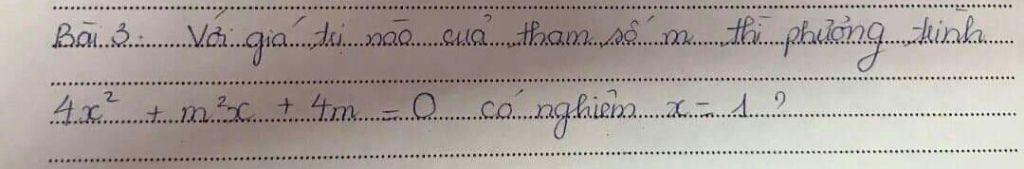 Bài 3: Với giá trị nào của tham số m thì phương trình
4x² + m²x + 4m = 0 có nghiệm x = 1 ?